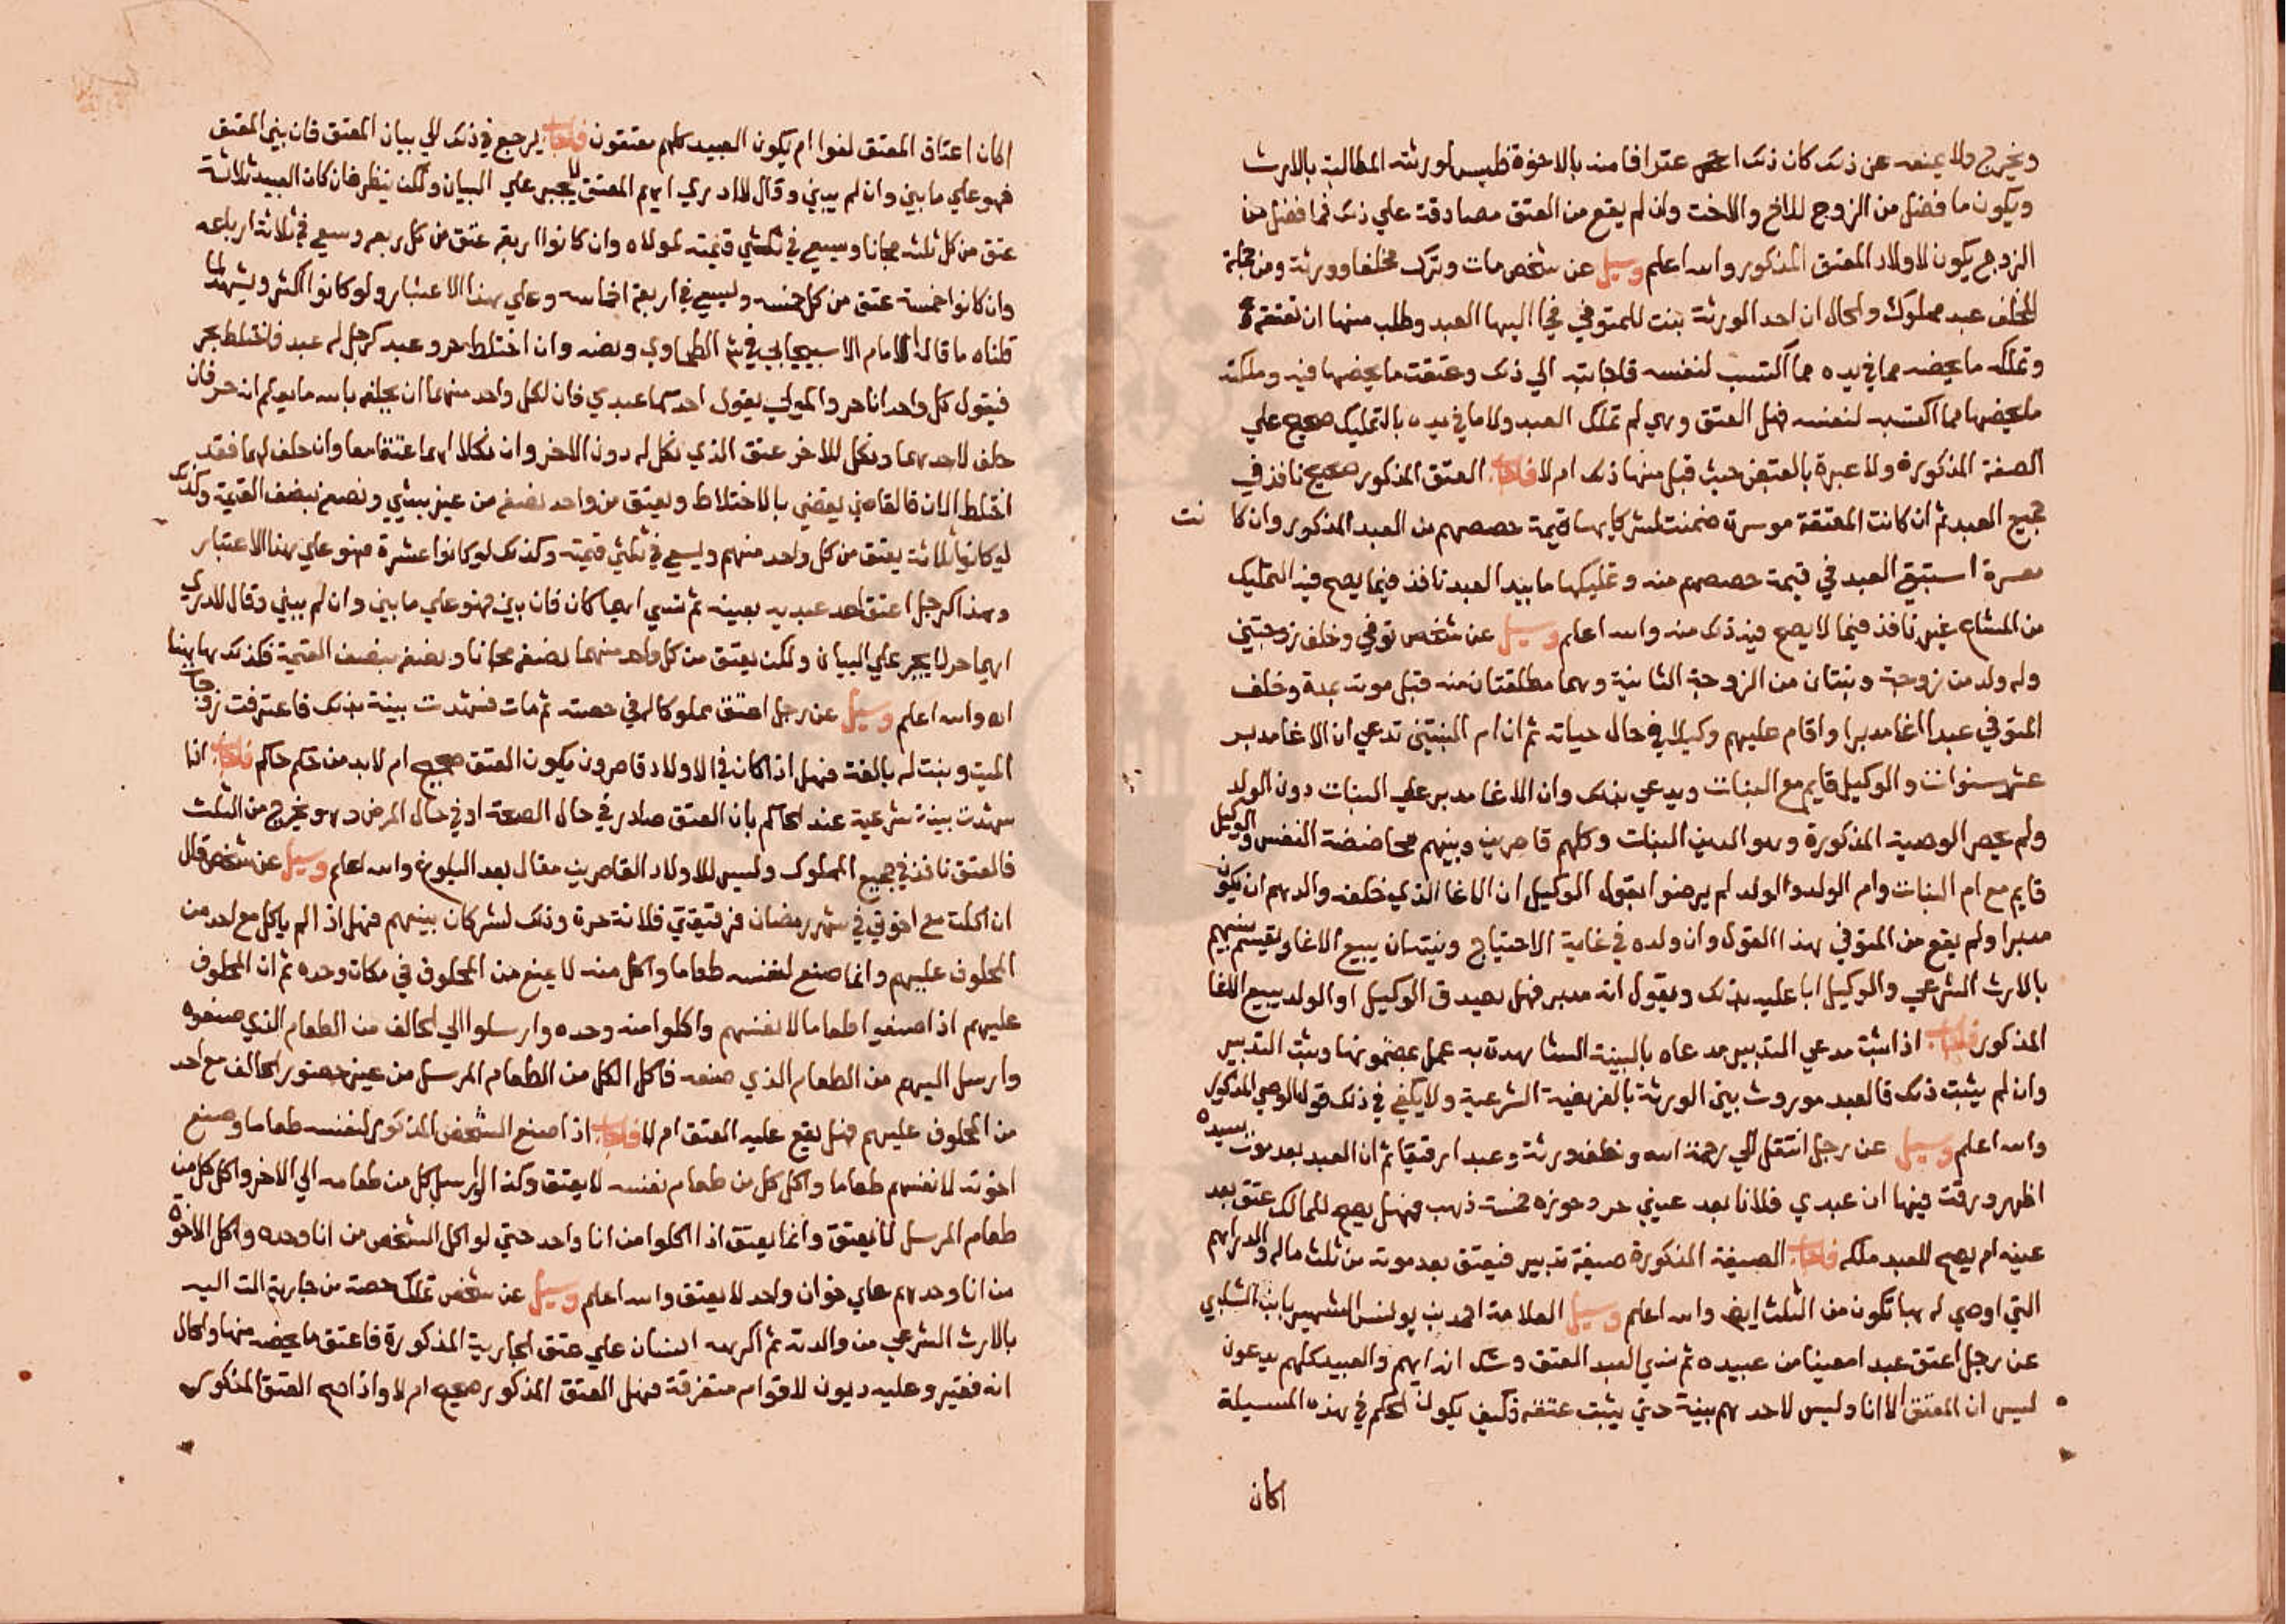 ويخرج ولا يمنعه عن ذلك كان ذلك اعترافا منه بالاخوة فليس لورثته المطالبة بالارث
ويكون ما فضل من الزوج للاخ والاخت وان لم يقع من المعتق مصادقة علي ذلك فما فضل من
الزوج يكون لاولاد المعتق المذكور والله اعلم وسيل عن شخص مات وترك مخلفا وورثة ومن جملة
المخلف عبد مملوك والحال ان احد الورثة بنت للمتوفي فجا اليها العبد وطلب منها ان تعتقه
وتملكه ما يخصه مما في يده مما اكتسب لنفسه فاجابته الي ذلك وعتقت ما يخصها فيه وملكته
ما يخصها مما اكتسبه لنفسه فهل العتق وهي لم تملك العبد ولا ما في يده بالتمليك صحيح علي
الصفة المذكورة ولا عبرة بالقبض حيث قبل منها ذلك ام لا فاجاب العتق المذكور صحيح نافذ في
جميع العبد ثم ان كانت المعتقة موسرة ضمنت لشركايها قيمة حصصهم من العبد المذكور وان كانت
معسرة استبقي العبد في قيمة حصصهم منه وتمليكها ما بيد العبد نافذ فيما يصح فيه التمليك
من المشاع غير نافذ فيما لا يصح فيه ذلك منه والله اعلم وسيل عن شخص توفي وخلف زوجتين
وله ولد من زوجة وبنتان من الزوجة الثانية وهما مطلقتان منه قبل موته بمدة وخلف
المتوفي عبدا اغا مدبرا واقام عليهم وكيلا في حال حياته ثم ان ام البنتين تدعي ان الاغا مدبر
عشر سنوات والوكيل قايم مع البنات ويدعي بذلك وان الاغا مدبر علي البنات دون الولد
ولم يحصر الوصية المذكورة وهو الدين البنات وكلهم قاصرين وبينهم مخاضضة النفس والوكيل
قايم مع ام البنات وام الولد والولد لم يرضوا بقول الوكيل ان الاغا الذي خلفه والدهم ان يكون
مدبرا ولم يقع من المتوفي هذا القول وان ولده في غاية الاحتياج ونيته ان يبيع الاغا ويقسم بينهم
بالارث الشرعي والوكيل ابا عليه بذلك ويقول انه مدبر فهل يصدق الوكيل او الولد يبيع الاغا
المذكور فاجاب اذا اثبت مدعي التدبير مدعاه بالبينة الشاهدة به عمل بمضمونها وثبت التدبير
وان لم يثبت ذلك فالعبد موروث بين الورثة بالفريضة الشرعية ولا يكفي في ذلك قول الوصي المذكور
والله اعلم وسيل عن رجل انتقل الي رحمة الله وخلف ورثة وعبدا رقيقا ثم ان العبد بعد موت سيده
اظهر ورقة فيها ان عبدي فلانا بعد عيني حر وحوزه خمسة ذهب فهل يصح للمالك عتق بعد
عينه ام يصح للعبد ملكه فاجاب الصيغة المذكورة صيغة تدبير فيعتق بعد موته من ثلث ماله والدراهم
التي اوصي له بها تكون من الثلث ايضا والله اعلم وسيل العلامة احمد بن يونس الشهير بابن الشلبي
عن رجل اعتق عبدا معينا من عبيده ثم نسي العبد المعتق وشك انه ايهم والعبيد كلهم يدعون
ليس ان المعتق الا انا وليس لاحدهم بينة حتي يثبت عتقه فكيف يكون الحكم في هذه المسيلة
اكان
اكان اعتاق المعتق لغوا ام يكون العبيد كلهم معتقون فاجاب يرجع في ذلك الي بيان المعتق فان بين المعتق
فهو علي ما بين وان لم يبين وقال لا ادري ايهم المعتق لا يجبر علي البيان ولكن ينظر فان كان العبيد ثلاثة
عتق من كل ثلثه مجانا ويسعي في ثلثي قيمته لمولاه وان كانوا اربعة عتق من كل ربعه وسعي في ثلاثة ارباعه
وان كانوا خمسة عتق من كل خمسه ويسعي في اربعة اخماسه وعلي هذا الاعتبار ولو كانوا اكثر ويشهد لما
قلناه ما قاله الامام الاسبيجابي في شرح الطحاوي ونصه وان اختلط حر وعبد كرجل له عبد فاختلط بحر
فيقول كل واحد انا حر والمولي يقول احدكما عبدي فان لكل واحد منهما ان يحلفه بالله ما يعلم انه حر فان
حلف لاحدهما ونكل للاخر عتق الذي نكل له دون الاخر وان نكلا لهما عتقا معا وان حلف لهما فقد
اختلط الان فالقاضي يقضي بالاختلاط ويعتق من واحد نصفه من غير شي ونصفه بنصف القيمة وكذلك
لو كانوا ثلاثة يعتق من كل واحد منهم ويسعي في ثلثي قيمته وكذلك لو كانوا عشرة فهو علي هذا الاعتبار
وهذا كرجل اعتق احد عبديه بعينه ثم نسي ايهما كان فان بين فهو علي ما بين وان لم يبين وقال لا ادري
ايهما حر لا يجبر علي البيان ولكن يعتق من كل واحد منهما نصفه مجانا ونصفه بنصف القيمة فكذلك ها هنا
اه والله اعلم وسيل عن رجل اعتق مملوكا له في صحته ثم مات فشهدت بينة بذلك فاعترفت زوجة
الميت وبنت له بالغة فهل اذا كان في الاولاد قاصرون يكون العتق صحيح ام لا بد من حكم حاكم فاجاب اذا
شهدت بينة شرعية عند الحاكم بان العتق صادر في حال الصحة او في حال المرض وهو يخرج من الثلث
فالعتق نافذ في جميع المملوك وليس للاولاد القاصرين مقال بعد البلوغ والله اعلم وسيل عن شخص قال
ان اكلت مع اخوتي في شهر رمضان فرقيقتي فلانة حرة وذلك لشركان بينهم فهل اذا لم ياكل مع احد من
المحلوف عليهم وانما صنع لنفسه طعاما واكل منه لا يمنع من المحلوف في مكان وحده ثم ان المحلوف
عليهم اذا صنعوا طعاما لانفسهم واكلوا منه وحده وارسلوا الي الحالف من الطعام الذي صنعوه
وارسل اليهم من الطعام الذي صنعه فاكل الكل من الطعام المرسل من غير حضور الحالف مع احد
من المحلوف عليهم فهل يقع عليه العتق ام لا فاجاب اذا صنع الشخص المذكور لنفسه طعاما وصنع
اخوته لانفسهم طعاما واكل كل من طعام نفسه لا يعتق وكذا لو ارسل كل من طعامه الي الاخر واكل كل من
طعام المرسل لا يعتق وانما يعتق اذا اكلوا من انا واحد حتي لو اكل الشخص من انا وحده واكل الاخوة
من انا وحدهم علي خوان واحد لا يعتق والله اعلم وسيل عن شخص تملك حصة من جارية الت اليه
بالارث الشرعي من والدته ثم اكرهه انسان علي عتق الجارية المذكورة فاعتق ما يخصه منها والحال
انه فقير وعليه ديون لاقوام متفرقة فهل العتق المذكور صحيح ام لا واذا صح العتق المذكور